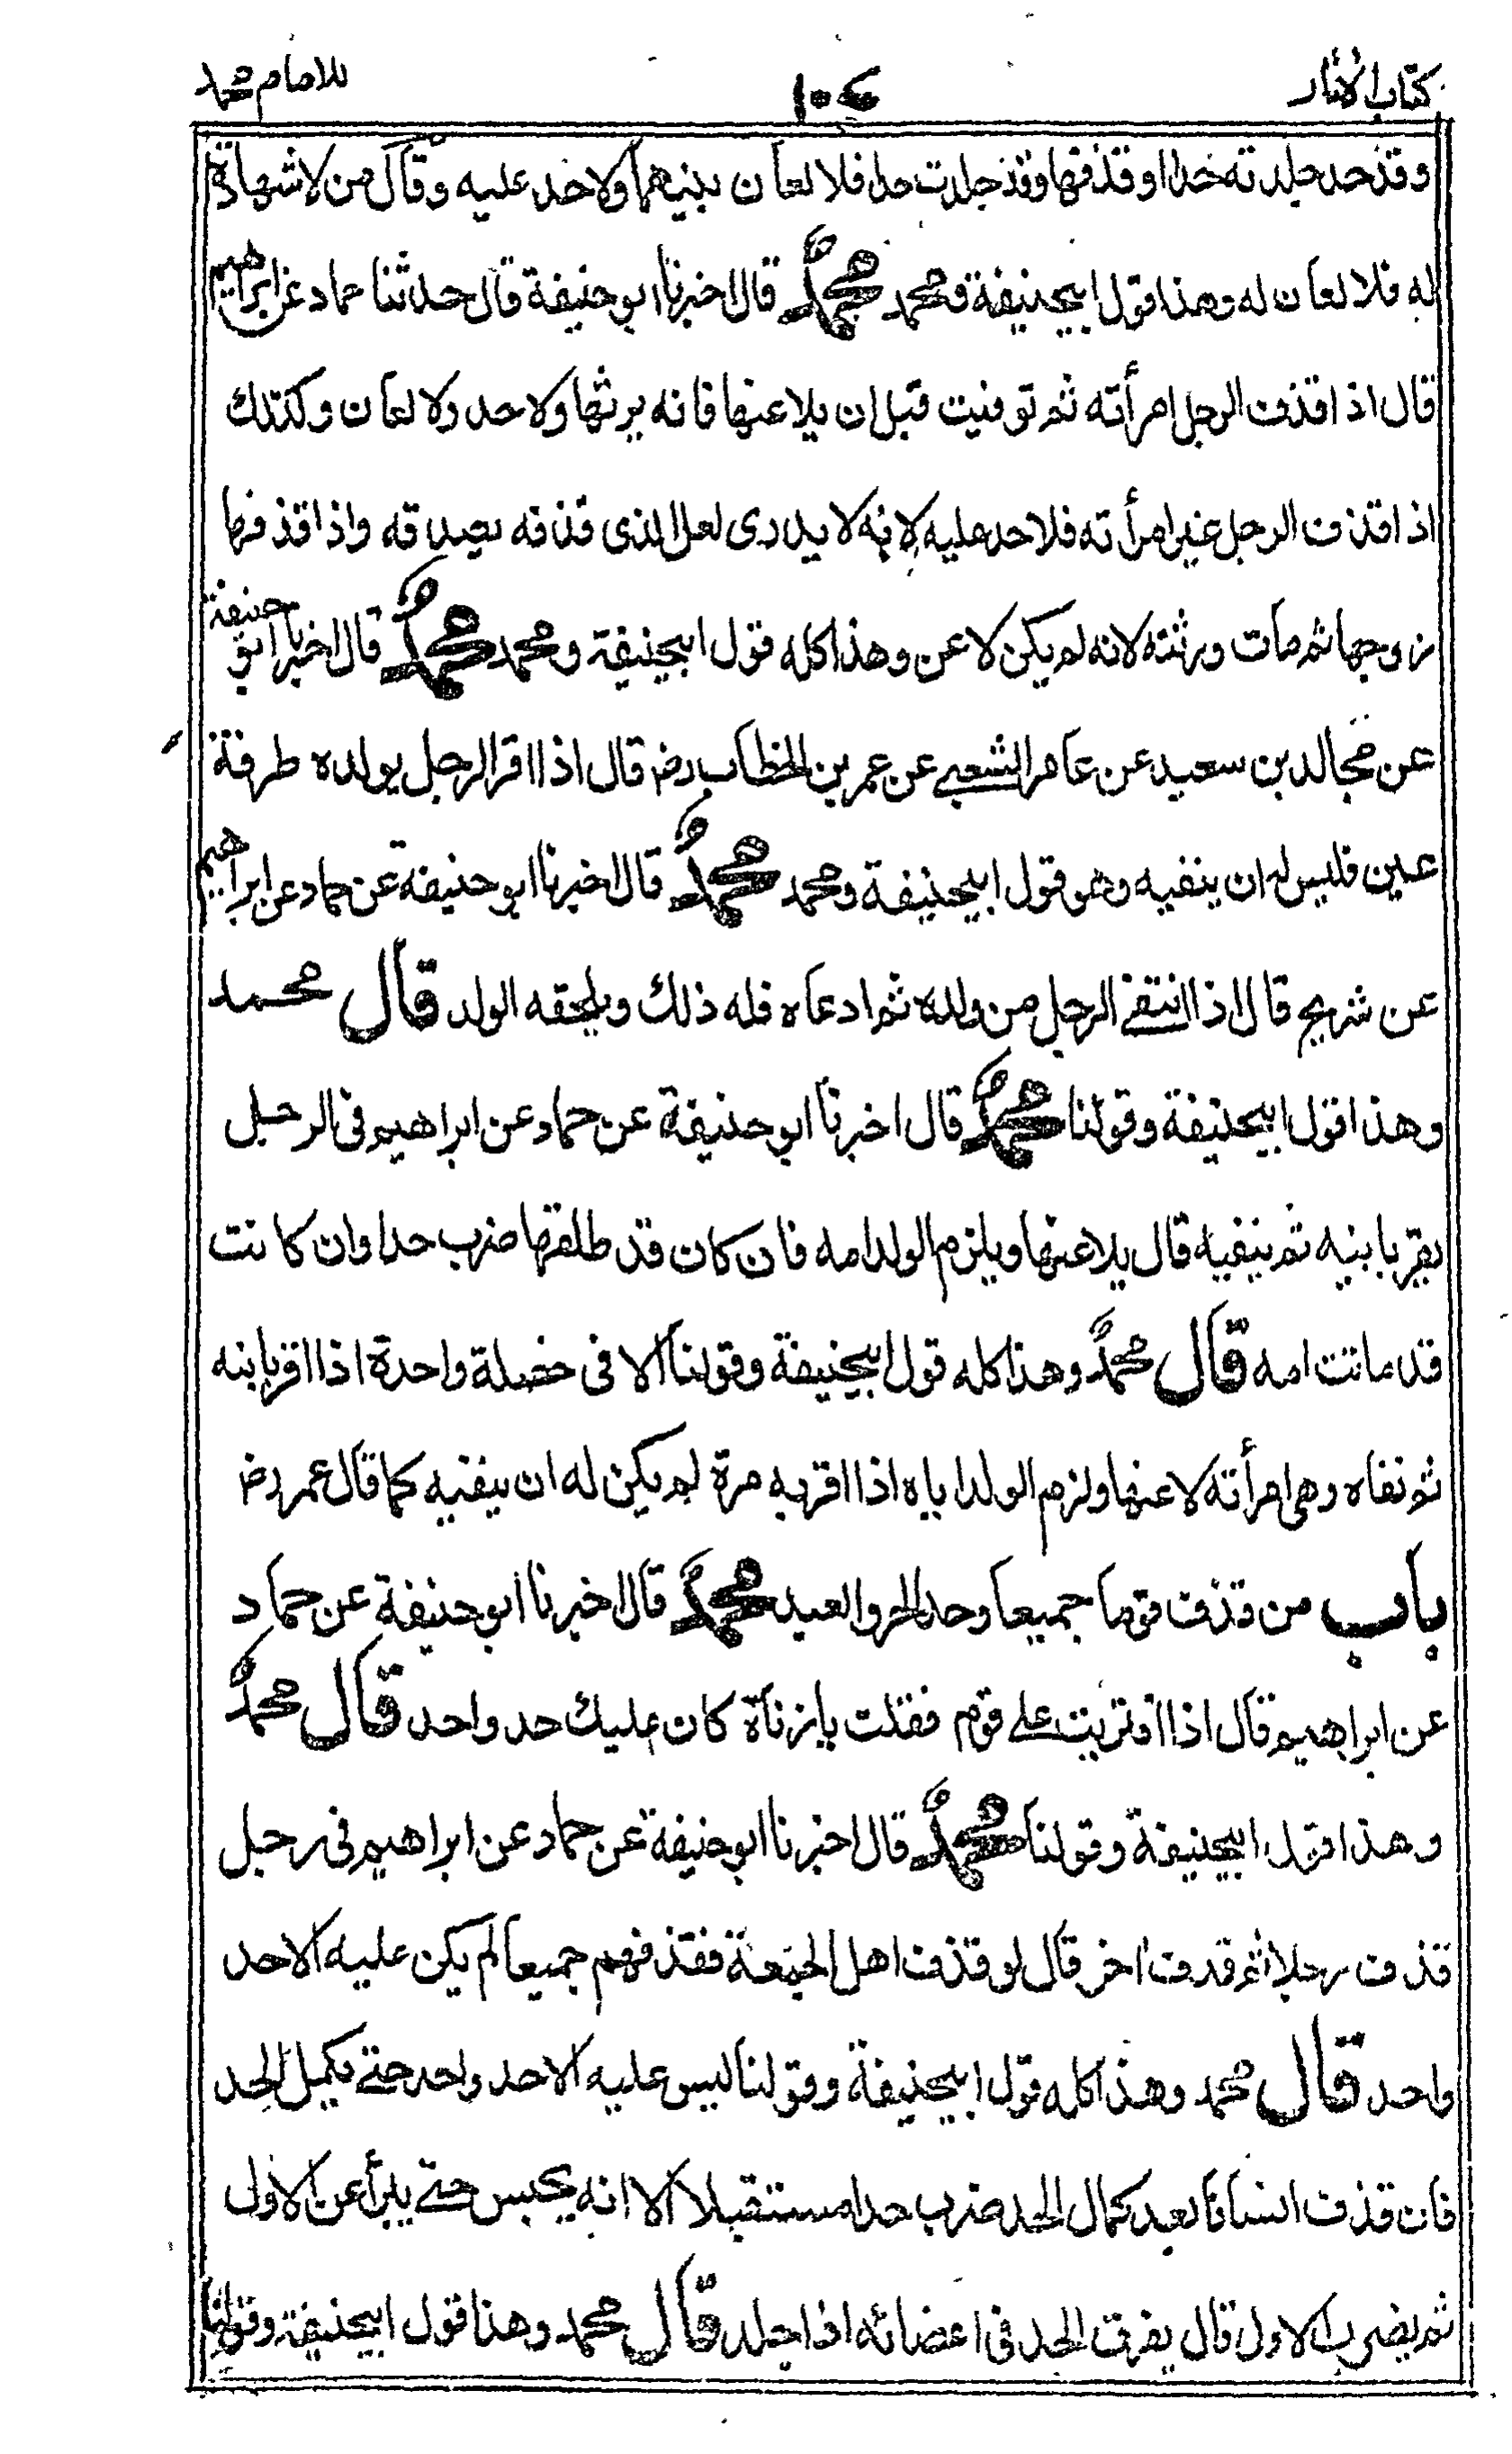 كتاب الآثار ١٠٤ للامام محمد
وقد حد جلدته حدا او قذفها وقد جلدت حدا فلا لعان بينهما ولا حد عليه وقال من لا شهادة
له فلا لعان له وهذا قول ابيحنيفة ومحمد محمد قال اخبرنا ابو حنيفة قال حدثنا حماد عن ابراهيم
قال اذا قذف الرجل امرأته ثم توفيت قبل ان يلاعنها فانه يرثها ولا حد ولا لعان وكذلك
اذا قذف الرجل غير امرأته فلا حد عليه لانه لا يدرى لعل الذى قذفه يصدقه واذا قذفها
زوجها ثم مات ورثته لانه لم يكن لاعن وهذا كله قول ابيحنيفة ومحمد محمد قال اخبرنا ابو حنيفة
عن مجالد بن سعيد عن عامر الشعبي عن عمر بن الخطاب رض قال اذا اقر الرجل بولده طرفة
عين فليس له ان ينفيه وهو قول ابيحنيفة ومحمد محمد قال اخبرنا ابو حنيفة عن حماد عن ابراهيم
عن شريح قال اذا انتفى الرجل من ولده ثم ادعاه فله ذلك ويلحقه الولد قال محمد
وهذا قول ابيحنيفة وقولنا محمد قال اخبرنا ابو حنيفة عن حماد عن ابراهيم فى الرجل
يقر بابنيه ثم ينفيه قال يلاعنها ويلزم الولد امه فان كان قد طلقها ضرب حدا وان كانت
قد ماتت امه قال محمد وهذا كله قول ابيحنيفة وقولنا الا فى خصلة واحدة اذا اقر بابنه
ثم نفاه وهى امرأته لاعنها ولزم الولد اياه اذا اقر به مرة لم يكن له ان ينفيه كما قال عمر رض
باب من قذف قوما جميعا وحد الحر والعبد محمد قال اخبرنا ابو حنيفة عن حماد
عن ابراهيم قال اذا افتريت على قوم فقلت يا زناة كان عليك حد واحد قال محمد
وهذا قول ابيحنيفة وقولنا محمد قال اخبرنا ابو حنيفة عن حماد عن ابراهيم فى رجل
قذف رجلا ثم قذف اخر قال لو قذف اهل الجمعة فقذفهم جميعا لم يكن عليه الا حد
واحد قال محمد وهذا كله قول ابيحنيفة وقولنا ليس عليه الا حد واحد حتى يكمل الحد
فان قذف انسانا بعد كمال الحد ضرب حدا مستقبلا الا انه يحبس حتى يبرأ عن الاول
ثم يضرب الاول قال يفرق الحد فى اعضائه اذا جلد قال محمد وهذا قول ابيحنيفة وقولنا